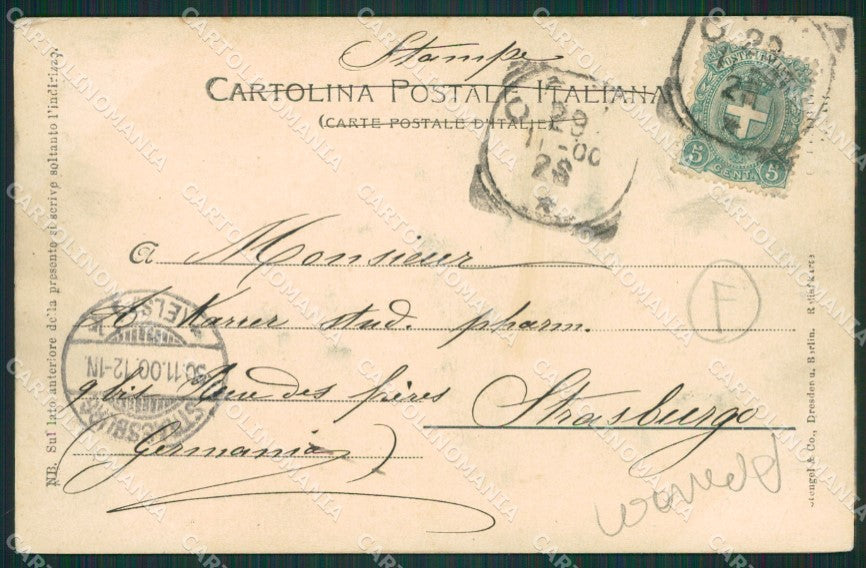 Stampe
CARTOLINA POSTALE ITALIANA
(CARTE POSTALE D'ITALIE)
5 CENT. 5
29
11-00
2S
a Monsieur
A Karrer stud. pharm.
9 bis Rue des frères Strasburgo
Germania)
30.11.00.12-1N.
STRASSBURG
ELS.
NB. Sul lato anteriore della presente si scrive soltanto l'indirizzo.
Stengel & Co., Dresden u. Berlin. Reliefkarte
CARTOLINOMANIA